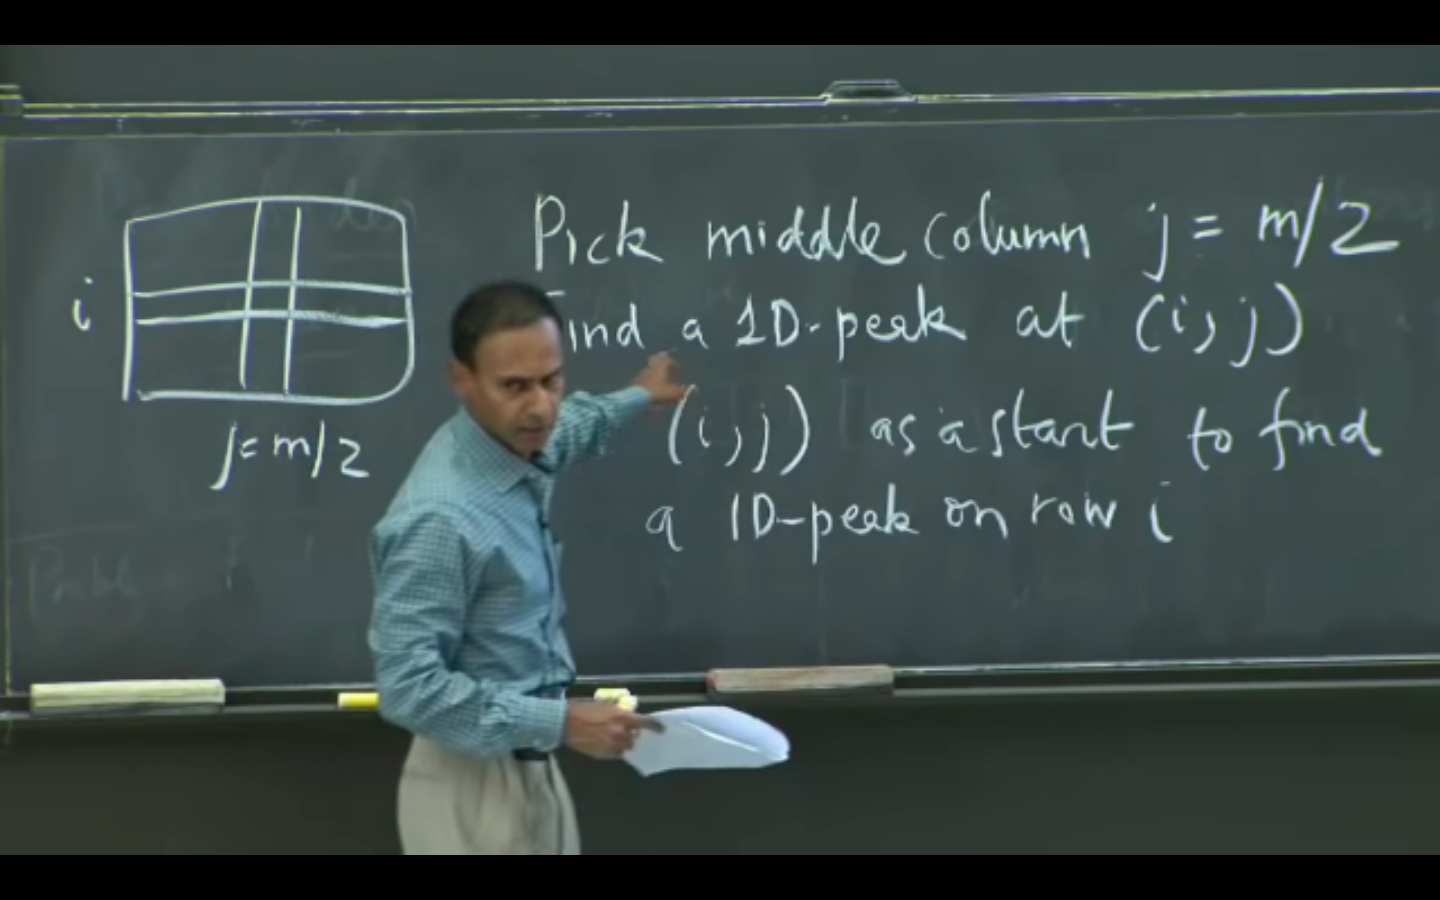 i
j=m/2
Pick middle column j = m/2
ind a 1D-peak at (i,j)
(i,j) as a start to find
a 1D-peak on row i